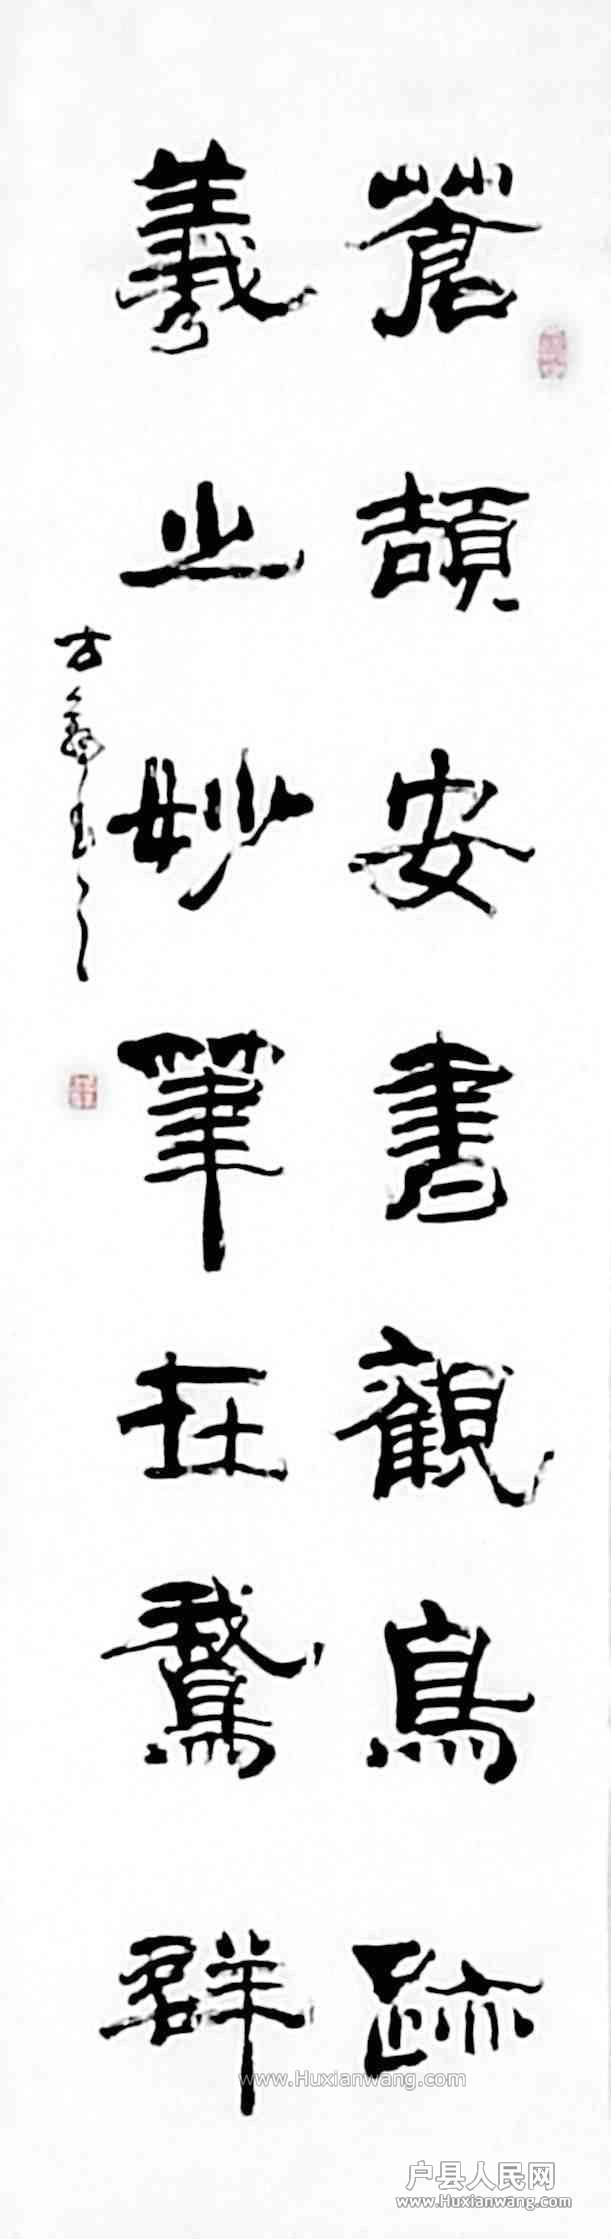 蒼頡安書觀鳥跡
羲之妙筆在鵞群
www.Huxianwang.com
户县人民网
www.Huxianwang.com